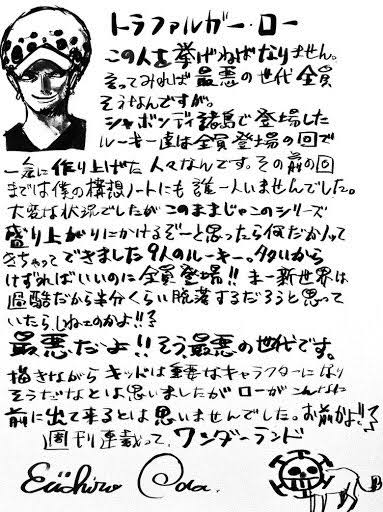 トラファルガー・ロー
この人を挙げねばなりません。
言ってみれば最悪の世代全員
そうなんですが。
シャボンディ諸島で登場した
ルーキー達は全員登場の回で
一気に作り上げた人々なんです。その前の回
までは僕の構想ノートにも誰一人いませんでした。
大変な状況でしたがこのままじゃこのシリーズ
盛り上がりにかけるぞーと思ったら何だか入って
きちゃってできました9人のルーキー。タタいから
けずればいいのに全員登場!!まー新世界は
過酷だから半分くらい脱落するだろうと思って
いたら、しねェのかよ!!
最悪だよ!!そう最悪の世代です。
描きながらキッドは重要なキャラクターになり
そうだなとは思いましたがローがこんなに
前に出て来るとは思いませんでした。お前かよ!!
週刊連載って、ワンダーランド
Eiichiro Oda.